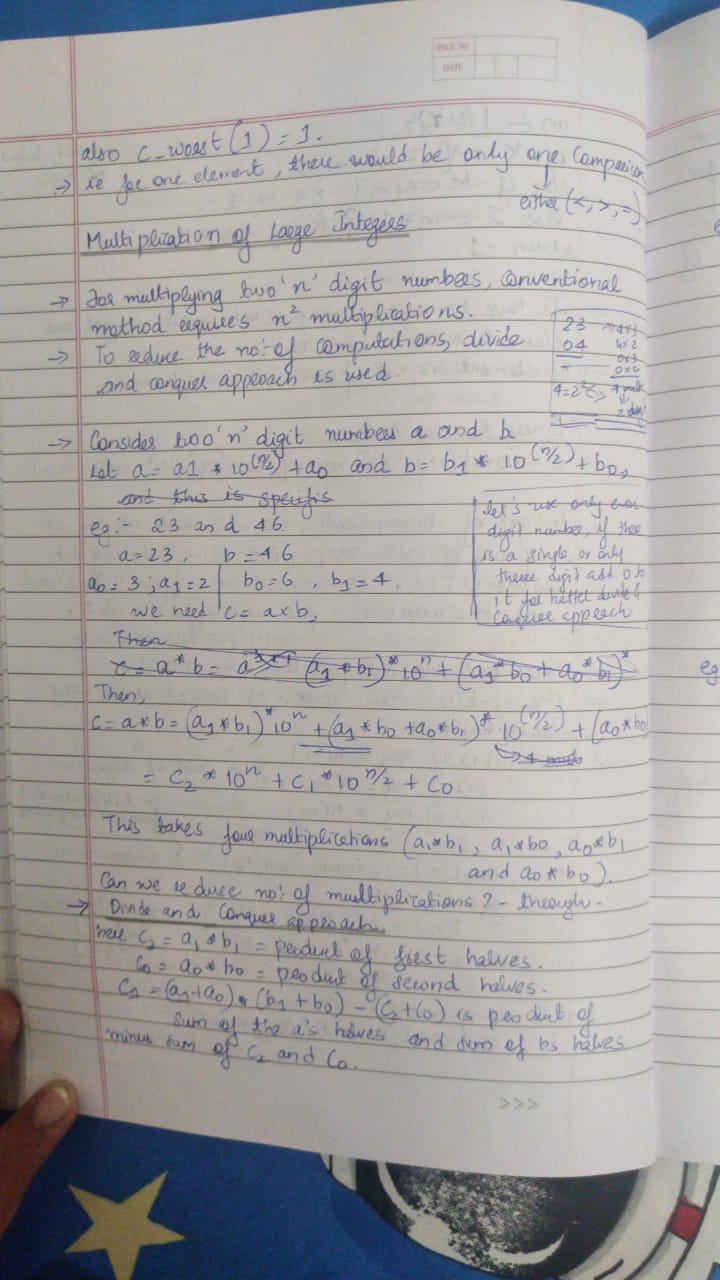 PAGE NO
DATE
also C_worst (1) = 1.
→ ie for one element, there would be only one Comparison
either (<, >, =)
Multiplication of Large Integers
→ for multiplying two 'n' digit numbers, conventional
method requires n² multiplications.
→ To reduce the no: of computations, divide
and conquer approach is used.
23 → 4×3
04 4×2
0×3
0×2
4=2² 4 mult
2 digit
→ Consider two 'n' digit numbers a and b.
Let a = a1 * 10^(n/2) + a0 and b = b1 * 10^(n/2) + b0,
and this is specific
eg:- 23 and 46.
a=23, b=46
a0 = 3 ; a1 = 2 | b0=6, b1=4.
we need c = a×b,
let's use only even
digit number, if there
is a single or only
three digit add 0 to
it for better divide &
Conquer approach
Then
c = a * b = (a1 * b1) * 10^n + (a1 * b0 + a0 * b1) *
Then,
c = a * b = (a1 * b1) * 10^n + (a1 * b0 + a0 * b1) * 10^(n/2) + (a0 * b0
→ 4 mult
= C2 * 10^n + C1 * 10^n/2 + C0
This takes four multiplications (a1 * b1, a1 * b0, a0 * b1
and a0 * b0).
Can we reduce no: of multiplications? - through -
→ Divide and Conquer approach
here C2 = a1 * b1 = product of first halves.
C0 = a0 * b0 = product of second halves.
C1 = (a1 + a0) * (b1 + b0) - (C2 + C0) is product of
sum of the a's halves and sum of b's halves
minus sum of C2 and C0.
>>>
eg